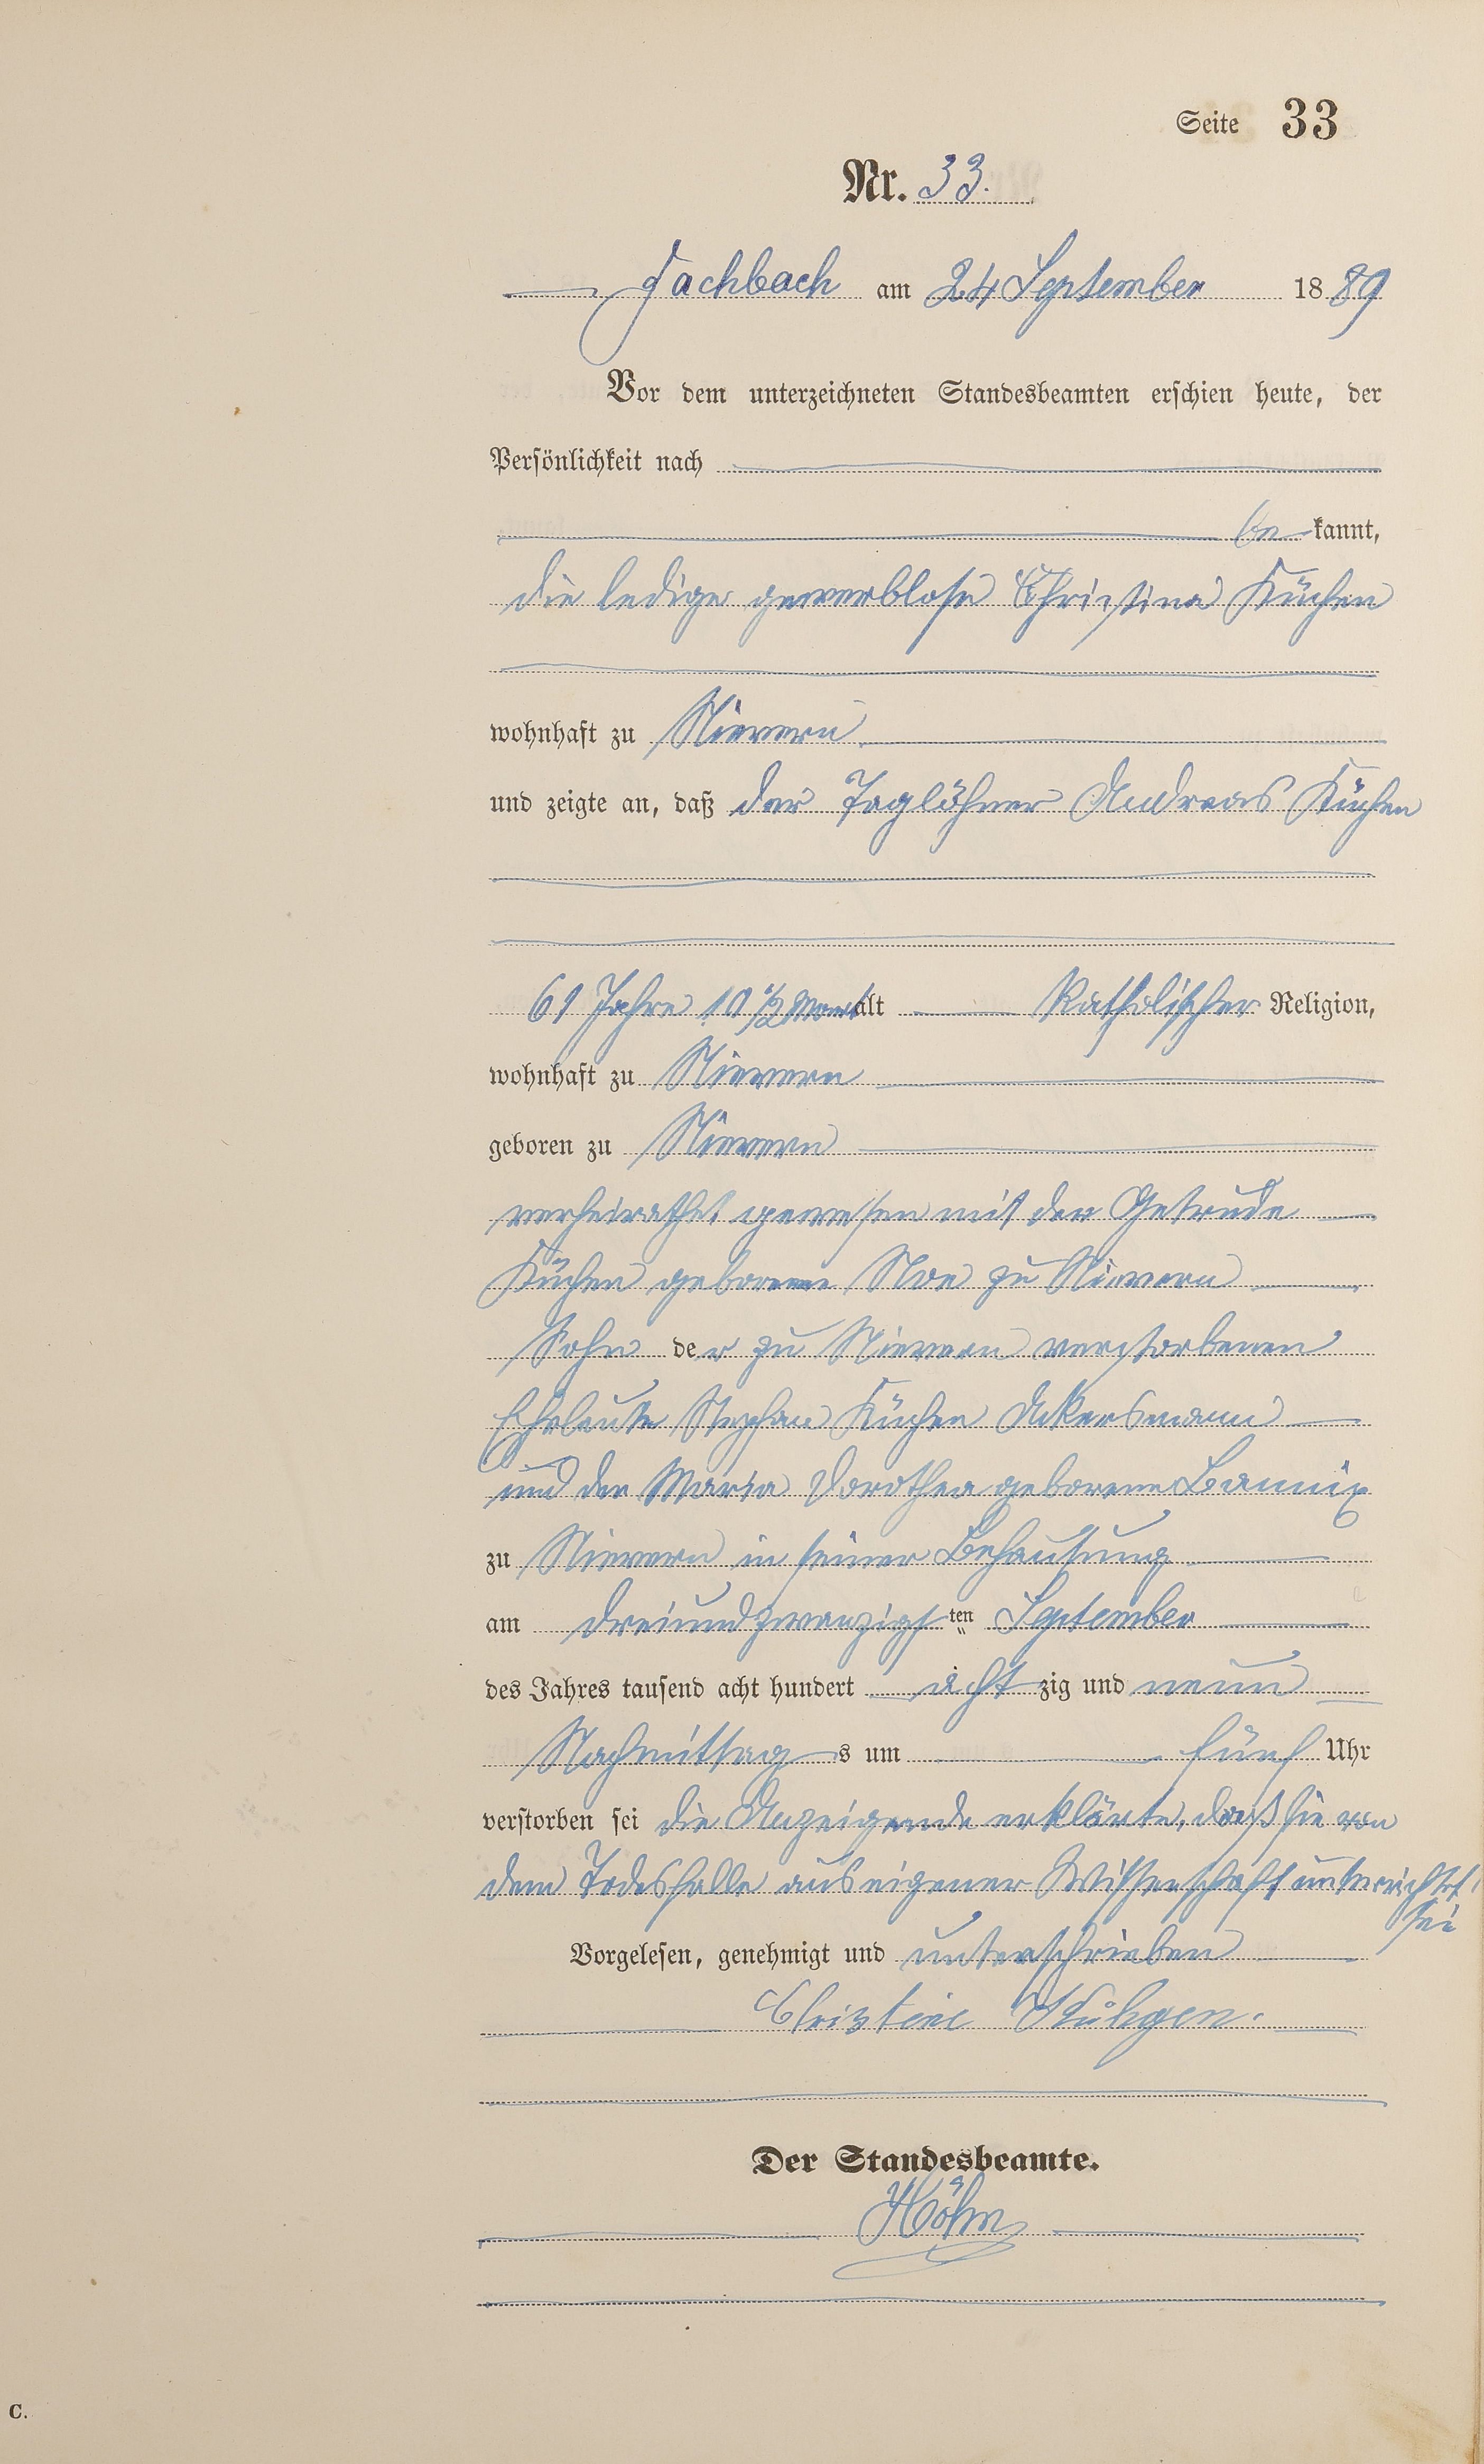 Seite 33
Nr. 33.
Fachbach am 24 September 1889
Vor dem unterzeichneten Standesbeamten erschien heute, der
Persönlichkeit nach
be kannt,
die ledige gewerblose Christina Küchen
wohnhaft zu Nievern
und zeigte an, daß der Taglöhner Andreas Küchen
61 Jahre 10 1/2 Mont alt Katholischer Religion,
wohnhaft zu Nievern
geboren zu Nievern
verheirathet gewesen mit der Getrude
Küchen geborene Noe zu Nievern
Sohn der zu Nievern verstorbenen
Eheleute Stephan Küchen Ackersmann
und der Maria Dorothea geborene
zu Nievern in seiner Behausung
am dreiundzwanzigsten September
des Jahres tausend acht hundert acht zig und neun
Nachmittags um fünf Uhr
verstorben sei die Anzeigende erklärte, daß sie von
dem Todesfalle aus eigener Wissenschaft unterrichtet
sei
Vorgelesen, genehmigt und unterschrieben
Christine Kühgen.
Der Standesbeamte.
Höhn
C.